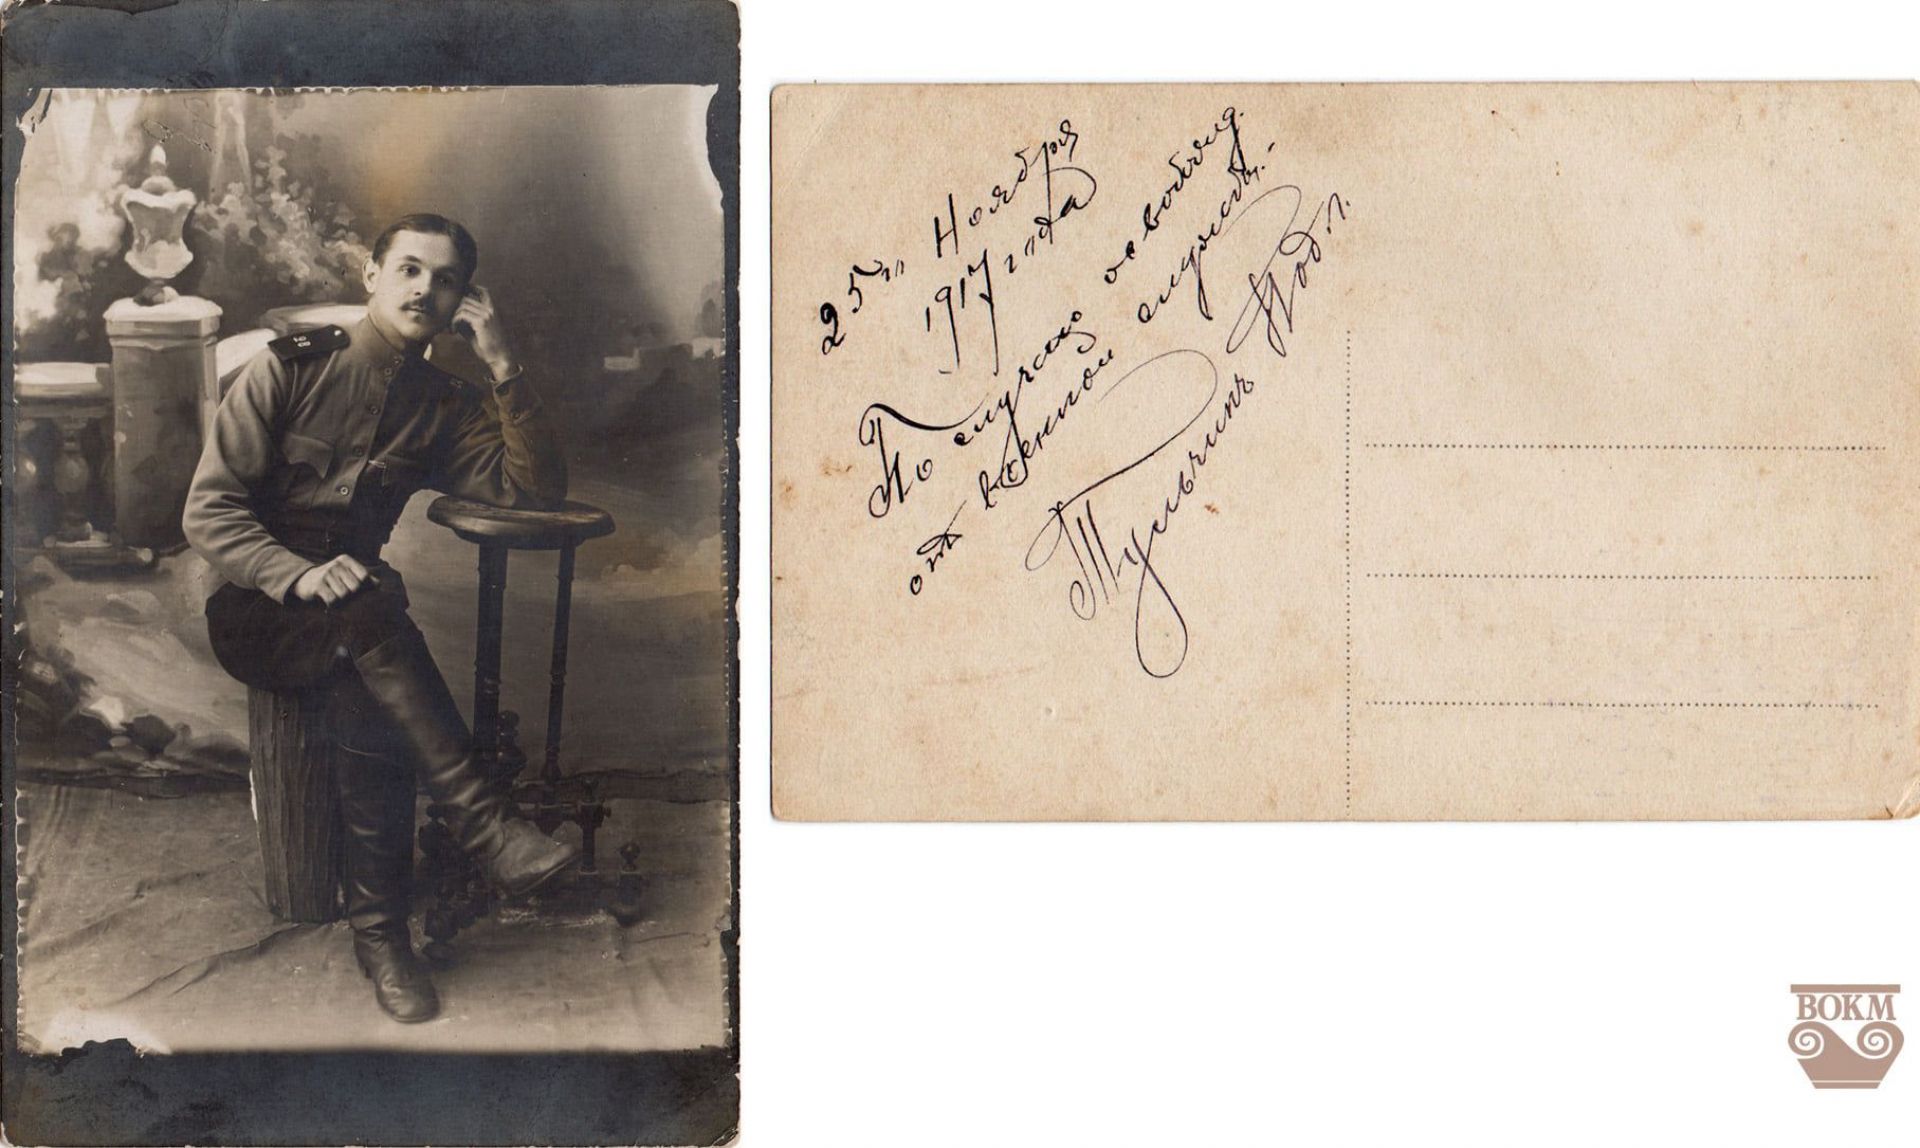 25го Ноября
1917 года
По случаю освобожд.
от военной службы.-
Тульчинъ Под. г.
ВОКМ